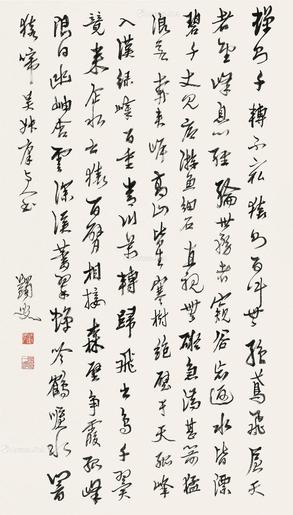 蟬則千轉不窮猿則百叫無絕鳶飛戾天
者望峰息心經綸世務者窺谷忘返水皆漂
碧千丈見底游魚細石直視無礙急湍甚箭猛
浪若奔夾岸高山皆生寒樹絕壁干天孤峰
入漢綠嶂百重青川萬轉歸飛之鳥千翼
競來企水之猿百臂相接森壁爭霞孤峰
限日幽岫含雲深溪蓄翠蟬吟鶴唳水響
猿啼 吳叔庠
蠲叟